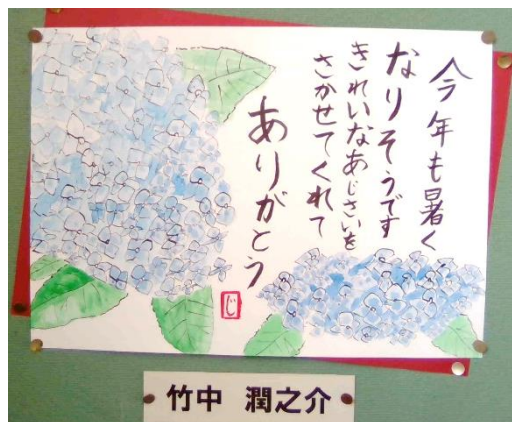 今年も暑く
なりそうです
きれいなあじさいを
さかせてくれて
ありがとう
じ
竹中 潤之介